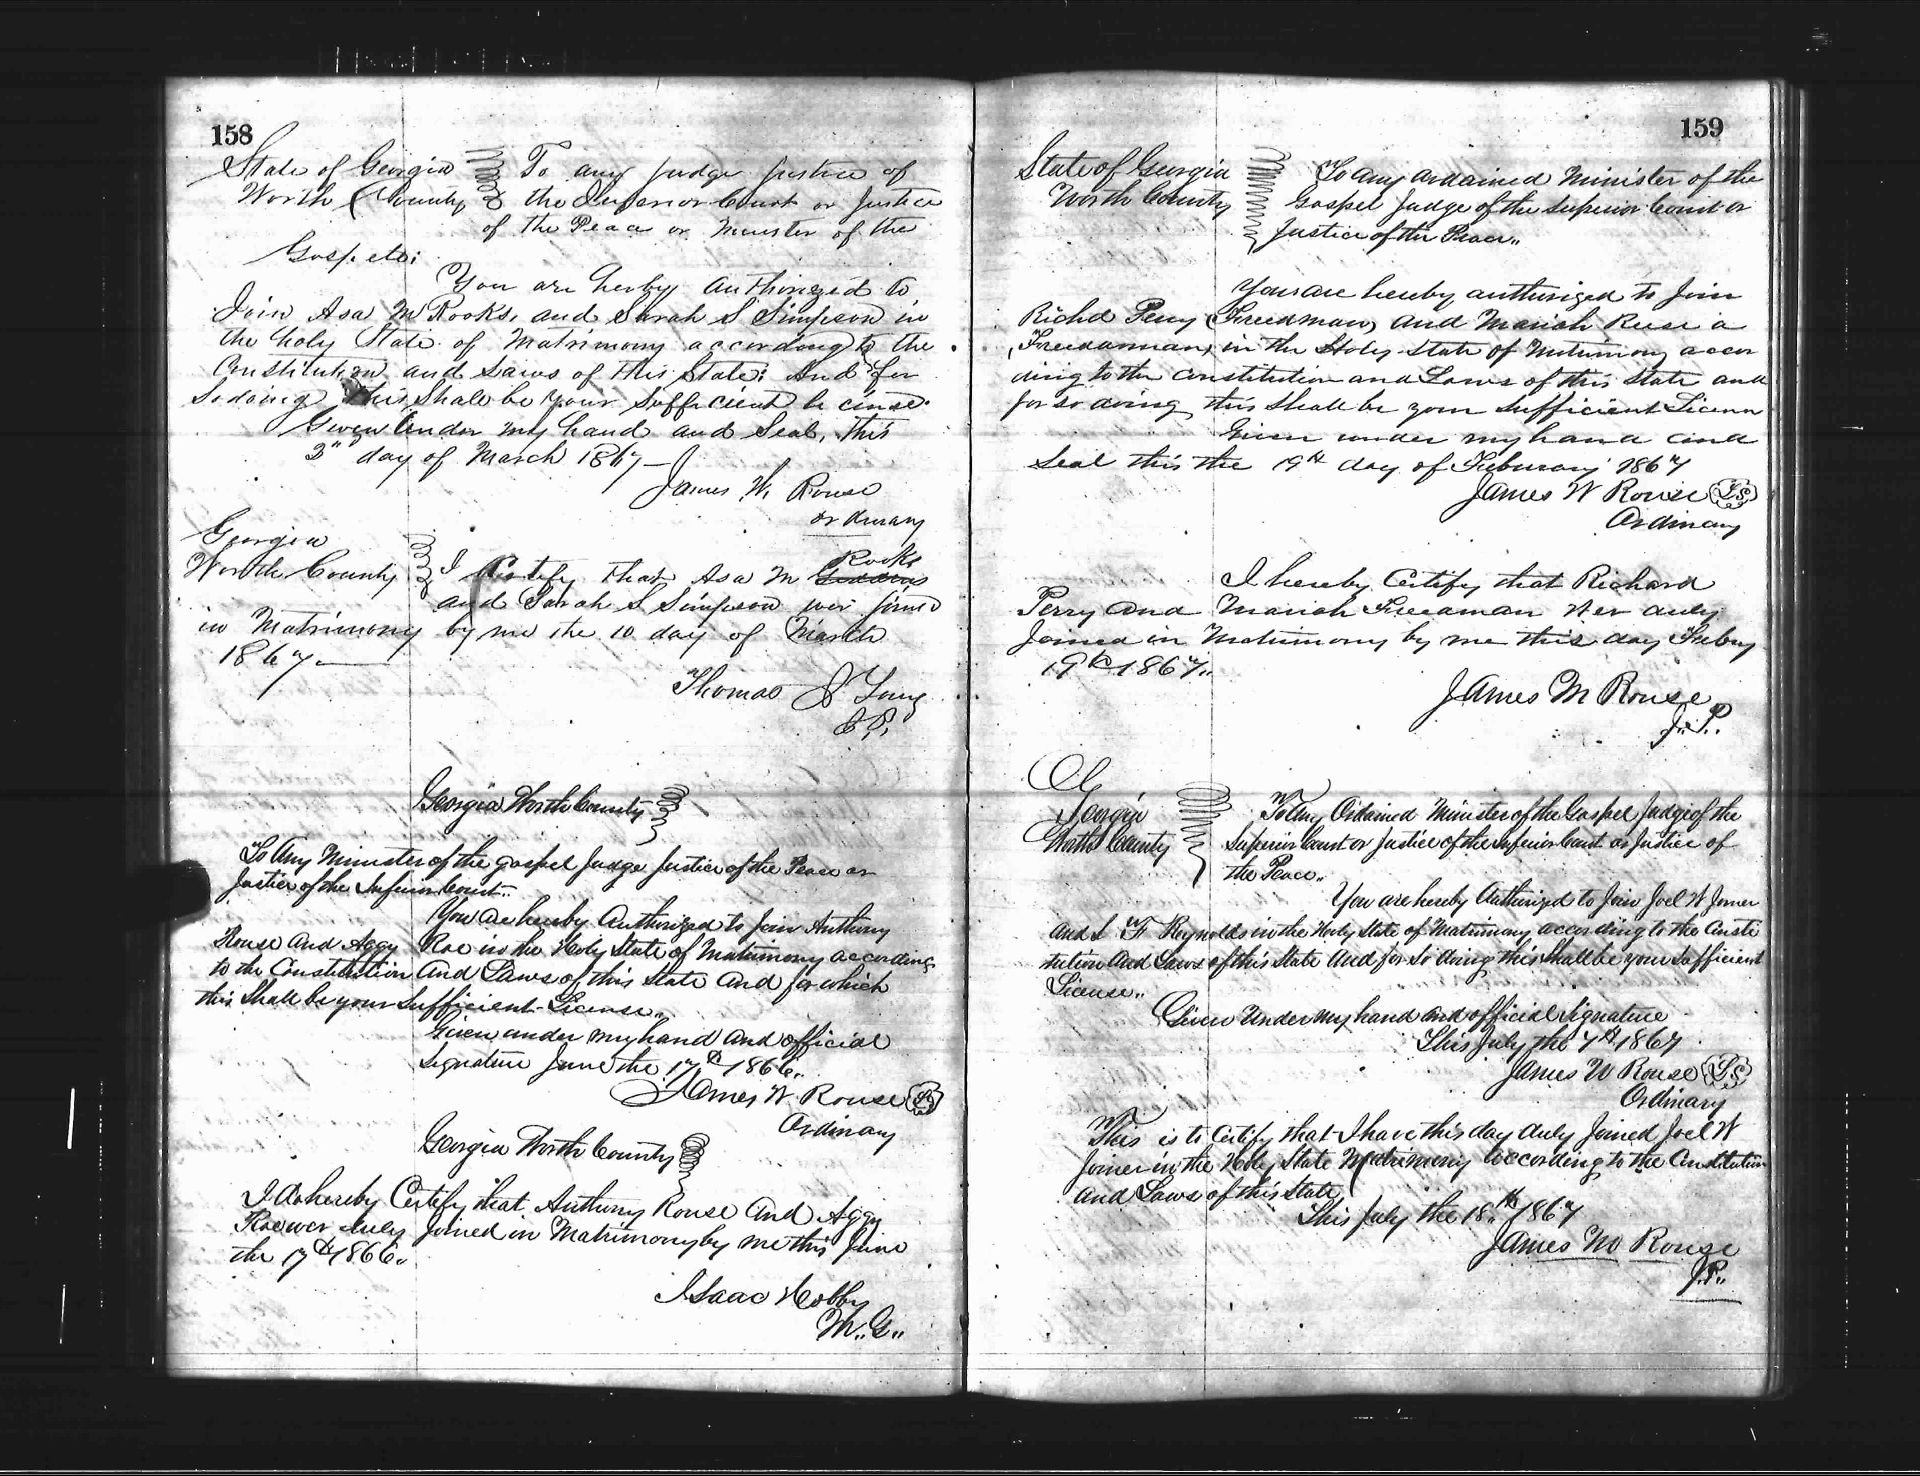 158
State of Georgia To any Judge Justice of
Worth County the Inferior Court or Justice
of the Peace or Minister of the
Gospel:
You are herby authorized to
Join Asa M Rooks, and Sarah S Simpson in
the holy State of Matrimony according to the
Constitution and Laws of this State: And for
So doing this Shall be your Sufficient
Given Under my hand and Seal, this
3" day of March 1867
James W. Rouse
Ordinary
Georgia
Worth County I Certify that Asa M Rooks
and Sarah S Simpson wer joined
in Matrimony by me the 10 day of March
1867
Thomas Young
Georgia Worth County
To Any Minister of the gospel Judge Justice of the Peace or
Justice of the Inferior Court..
You are hereby Authorized to Join Anthony
Rouse And Aggy Roe in the Holy State of Matrimony according
to the Constitution And Laws of this State And for which
this Shall be your Sufficient License..
Given under my hand and official
Signature June the 17th 1866..
James W Rouse LS
Ordinary
Georgia Worth County
I do hereby Certify that Anthony Rouse And Aggy
Roe wer duly Joined in Matrimony by me this June
the 17th 1866..
Isaac Hobby
M..G..
159
State of Georgia To Any ordained Minister of the
Worth County Gospel Judge of the Superior Court or
Justice of the Peace..
You are hereby authorized to Join
Richd Perry (Freedman) and Mariah Reese a
(Freedwoman) in the Holy State of Matrimony accor
ding to the Constitution and Laws of this State and
for so doing this Shall be your Sufficient License
Given under my hand and
Seal this the 19th day of Feburary 1867
James W Rouse LS
Ordinary
I hereby Certify that Richard
Perry and Mariah Freeaman Wer duly
Joined in Matrimony by me this day Febuy
19th 1867..
James M Rouse
J..P..
Georgia To Any Ordained Minister of the Gospel Judge of the
Worth County Superior Court or Justice of the Inferior Court or Justice of
the Peace..
You are hereby Authorized to Join Joel W Joiner
and S F Reynolds in the Holy State of Matrimony according to the Consti
tution And Laws of this State And for So doing this Shall be your Sufficient
License..
Given Under my hand and official Signature
This July the 7th 1867
James W Rouse LS
Ordinary
This is to Certify that I have this day duly Joined Joel W
Joiner in the Holy State Matrimony according to the Constitution
and Laws of this State
This July the 18..th 1867
James M Rouse
J.P..